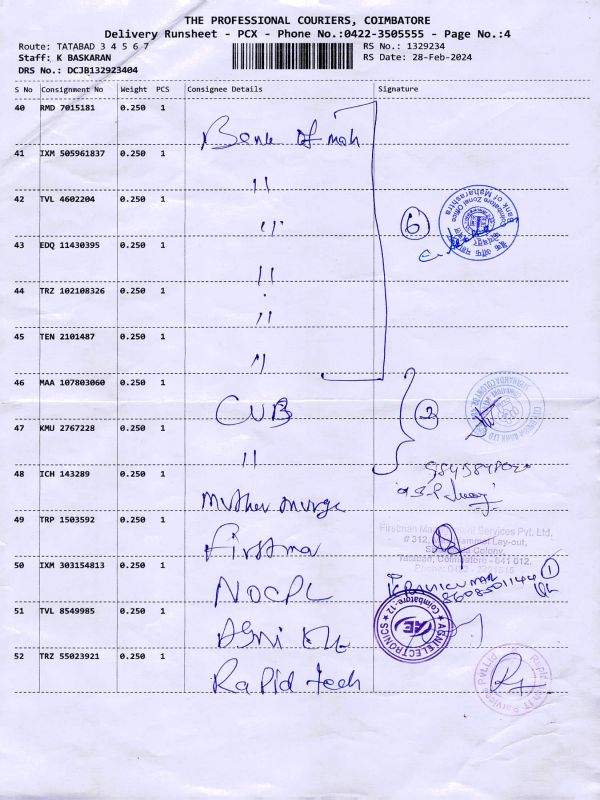 THE PROFESSIONAL COURIERS, COIMBATORE
Delivery Runsheet - PCX - Phone No.:0422-3505555 - Page No.:4
Route: TATABAD 3 4 5 6 7
RS No.: 1329234
Staff: K BASKARAN
RS Date: 28-Feb-2024
DRS No.: DCJB132923404
S No Consignment No Weight PCS Consignee Details Signature
40 RMD 7015181 0.250 1 Bank of mah
41 IXM 505961837 0.250 1 "
42 TVL 4602204 0.250 1 "
6
Bank of Maharashtra
Coimbatore Zonal Office
43 EDQ 11430395 0.250 1 "
44 TRZ 102108326 0.250 1 "
45 TEN 2101487 0.250 1 "
46 MAA 107803060 0.250 1 CUB
2
47 KMU 2767228 0.250 1 "
48 ICH 143289 0.250 1
49 TRP 1503592 0.250 1 Firstma
Firstman Management Services Pvt. Ltd,
# 312, Lay-out,
Colony,
Tatabad, Coimbatore - 641 012.
50 IXM 303154813 0.250 1 NOCPL
RAVIKUMAR 1
51 TVL 8549985 0.250 1 Agni Ele
AGNI ELECTRONICS
Coimbatore-12
AE
52 TRZ 55023921 0.250 1 Rapid tech